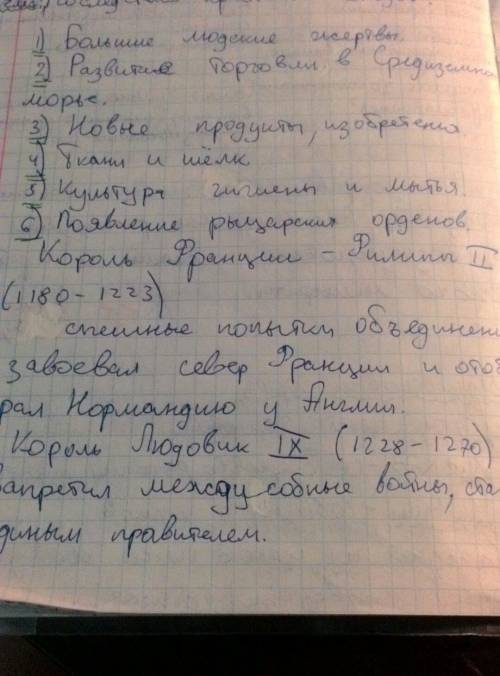 последствия
1) Большие людские жертвы.
2) Развитие торговли в Средиземно
морье.
3) Новые продукты, изобретения
4) Ткани и шёлк
5) Культура гигиены и мытья.
6) Появление рыцарских орденов.
Король Франции - Филипп II
(1180-1223)
спешные попытки объединени
завоевал север Франции и отоб
рал Нормандию у Англии.
Король Людовик IX (1228-1270)
запретил междусобные войны, ста
диным правителем.